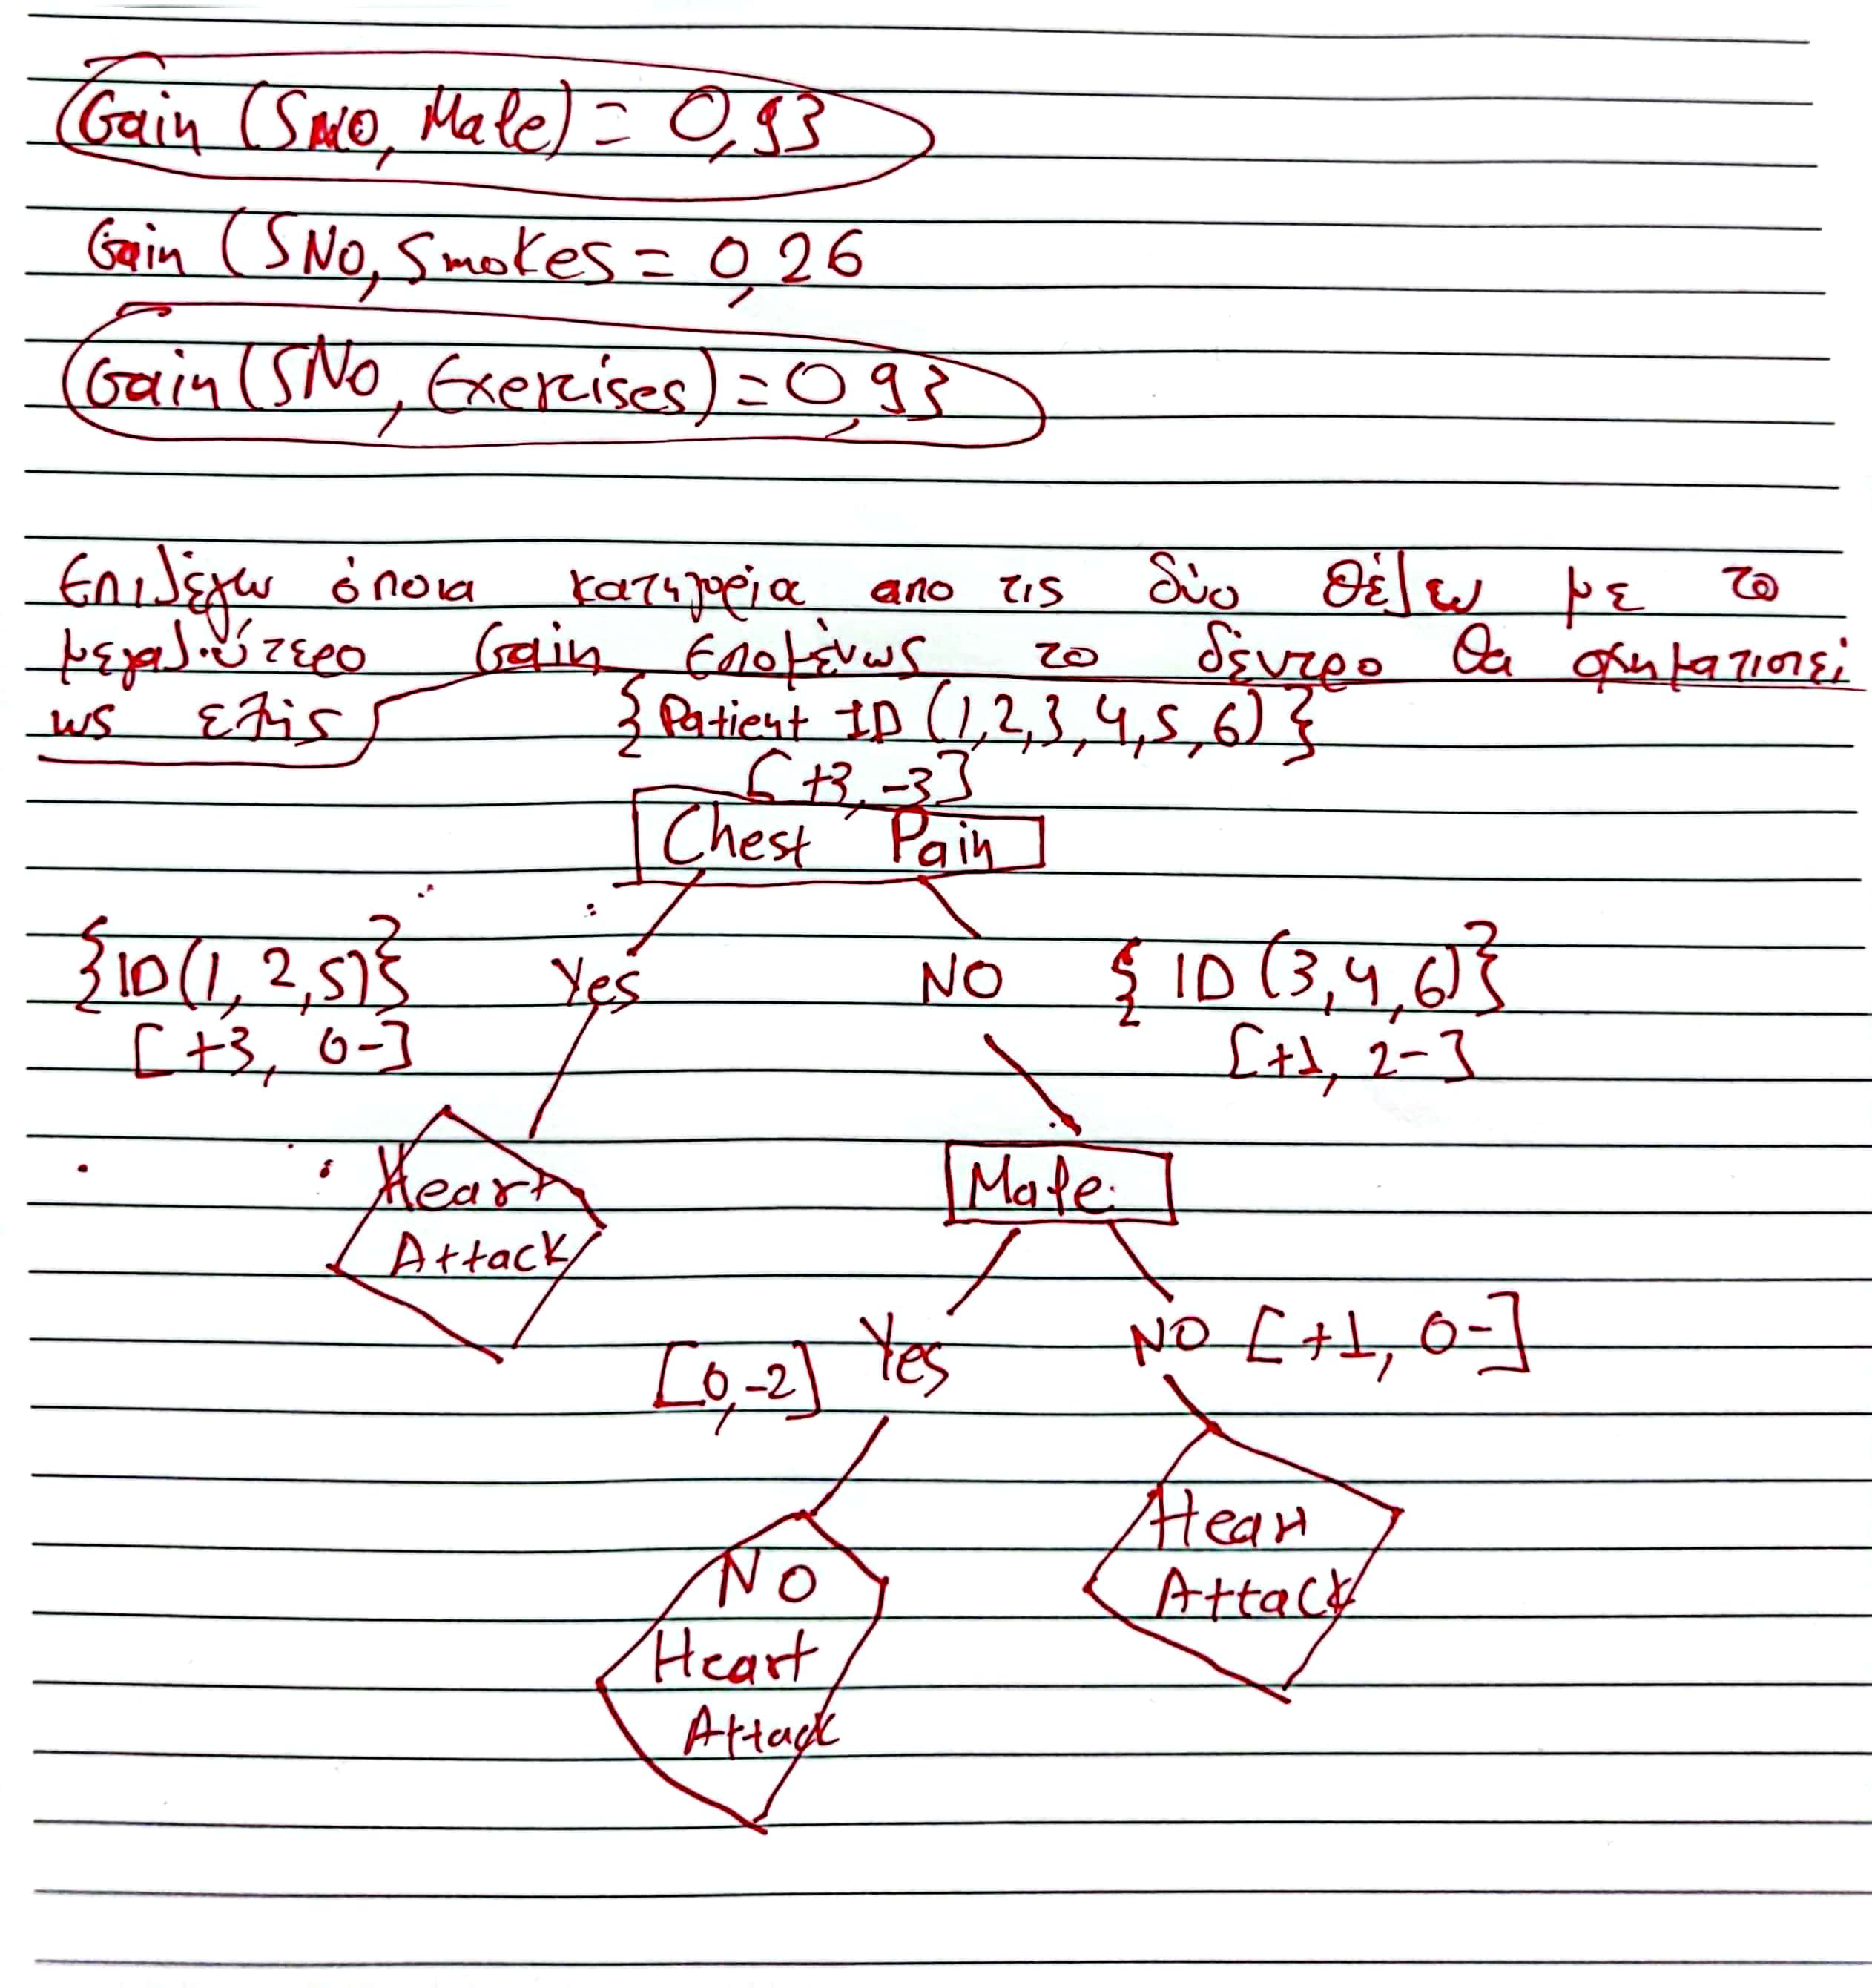 Gain (SNO, Male) = 0,93
Gain (SNO, Smokes = 0,26
Gain (SNO, Exercises) = 0,93
Επιλέγω όποια κατηγορία απο τις δύο θέλω με το
μεγαλύτερο Gain Επομένως το δέντρο θα σχηματιστεί
ως εξής
{ Patient ID (1,2,3,4,5,6) }
[ +3, -3 ]
Chest Pain
{ID(1, 2, 5)} Yes NO { ID (3,4,6)}
[ +3, 0- ] [ +1, 2- ]
Heart
Attack
Male
[0,-2] Yes NO [ +1, 0- ]
Heart
Attack
NO
Heart
Attack